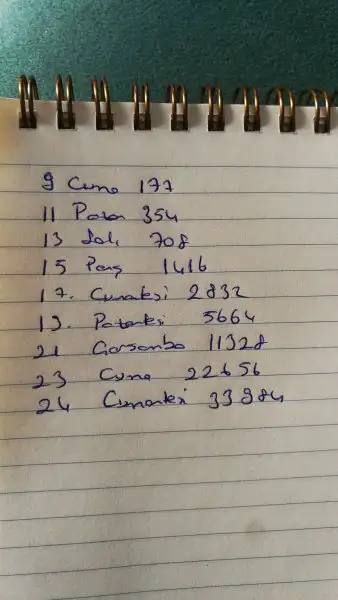 9 Cuma 177
11 Pazar 354
13 Salı 708
15 Perş 1416
17. Cumaktsi 2832
19. Pazartesi 5664
21 Çarşamba 11328
23 Cuma 22656
24 Cumartesi 33984